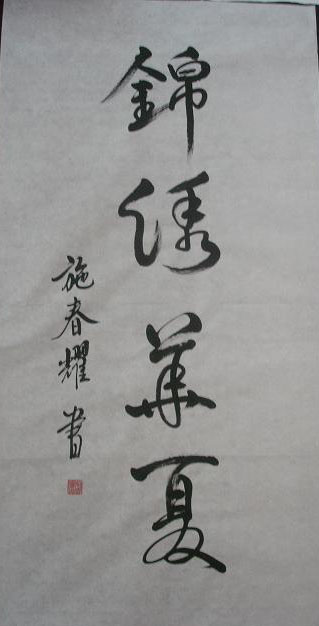 錦绣華夏
施春耀書